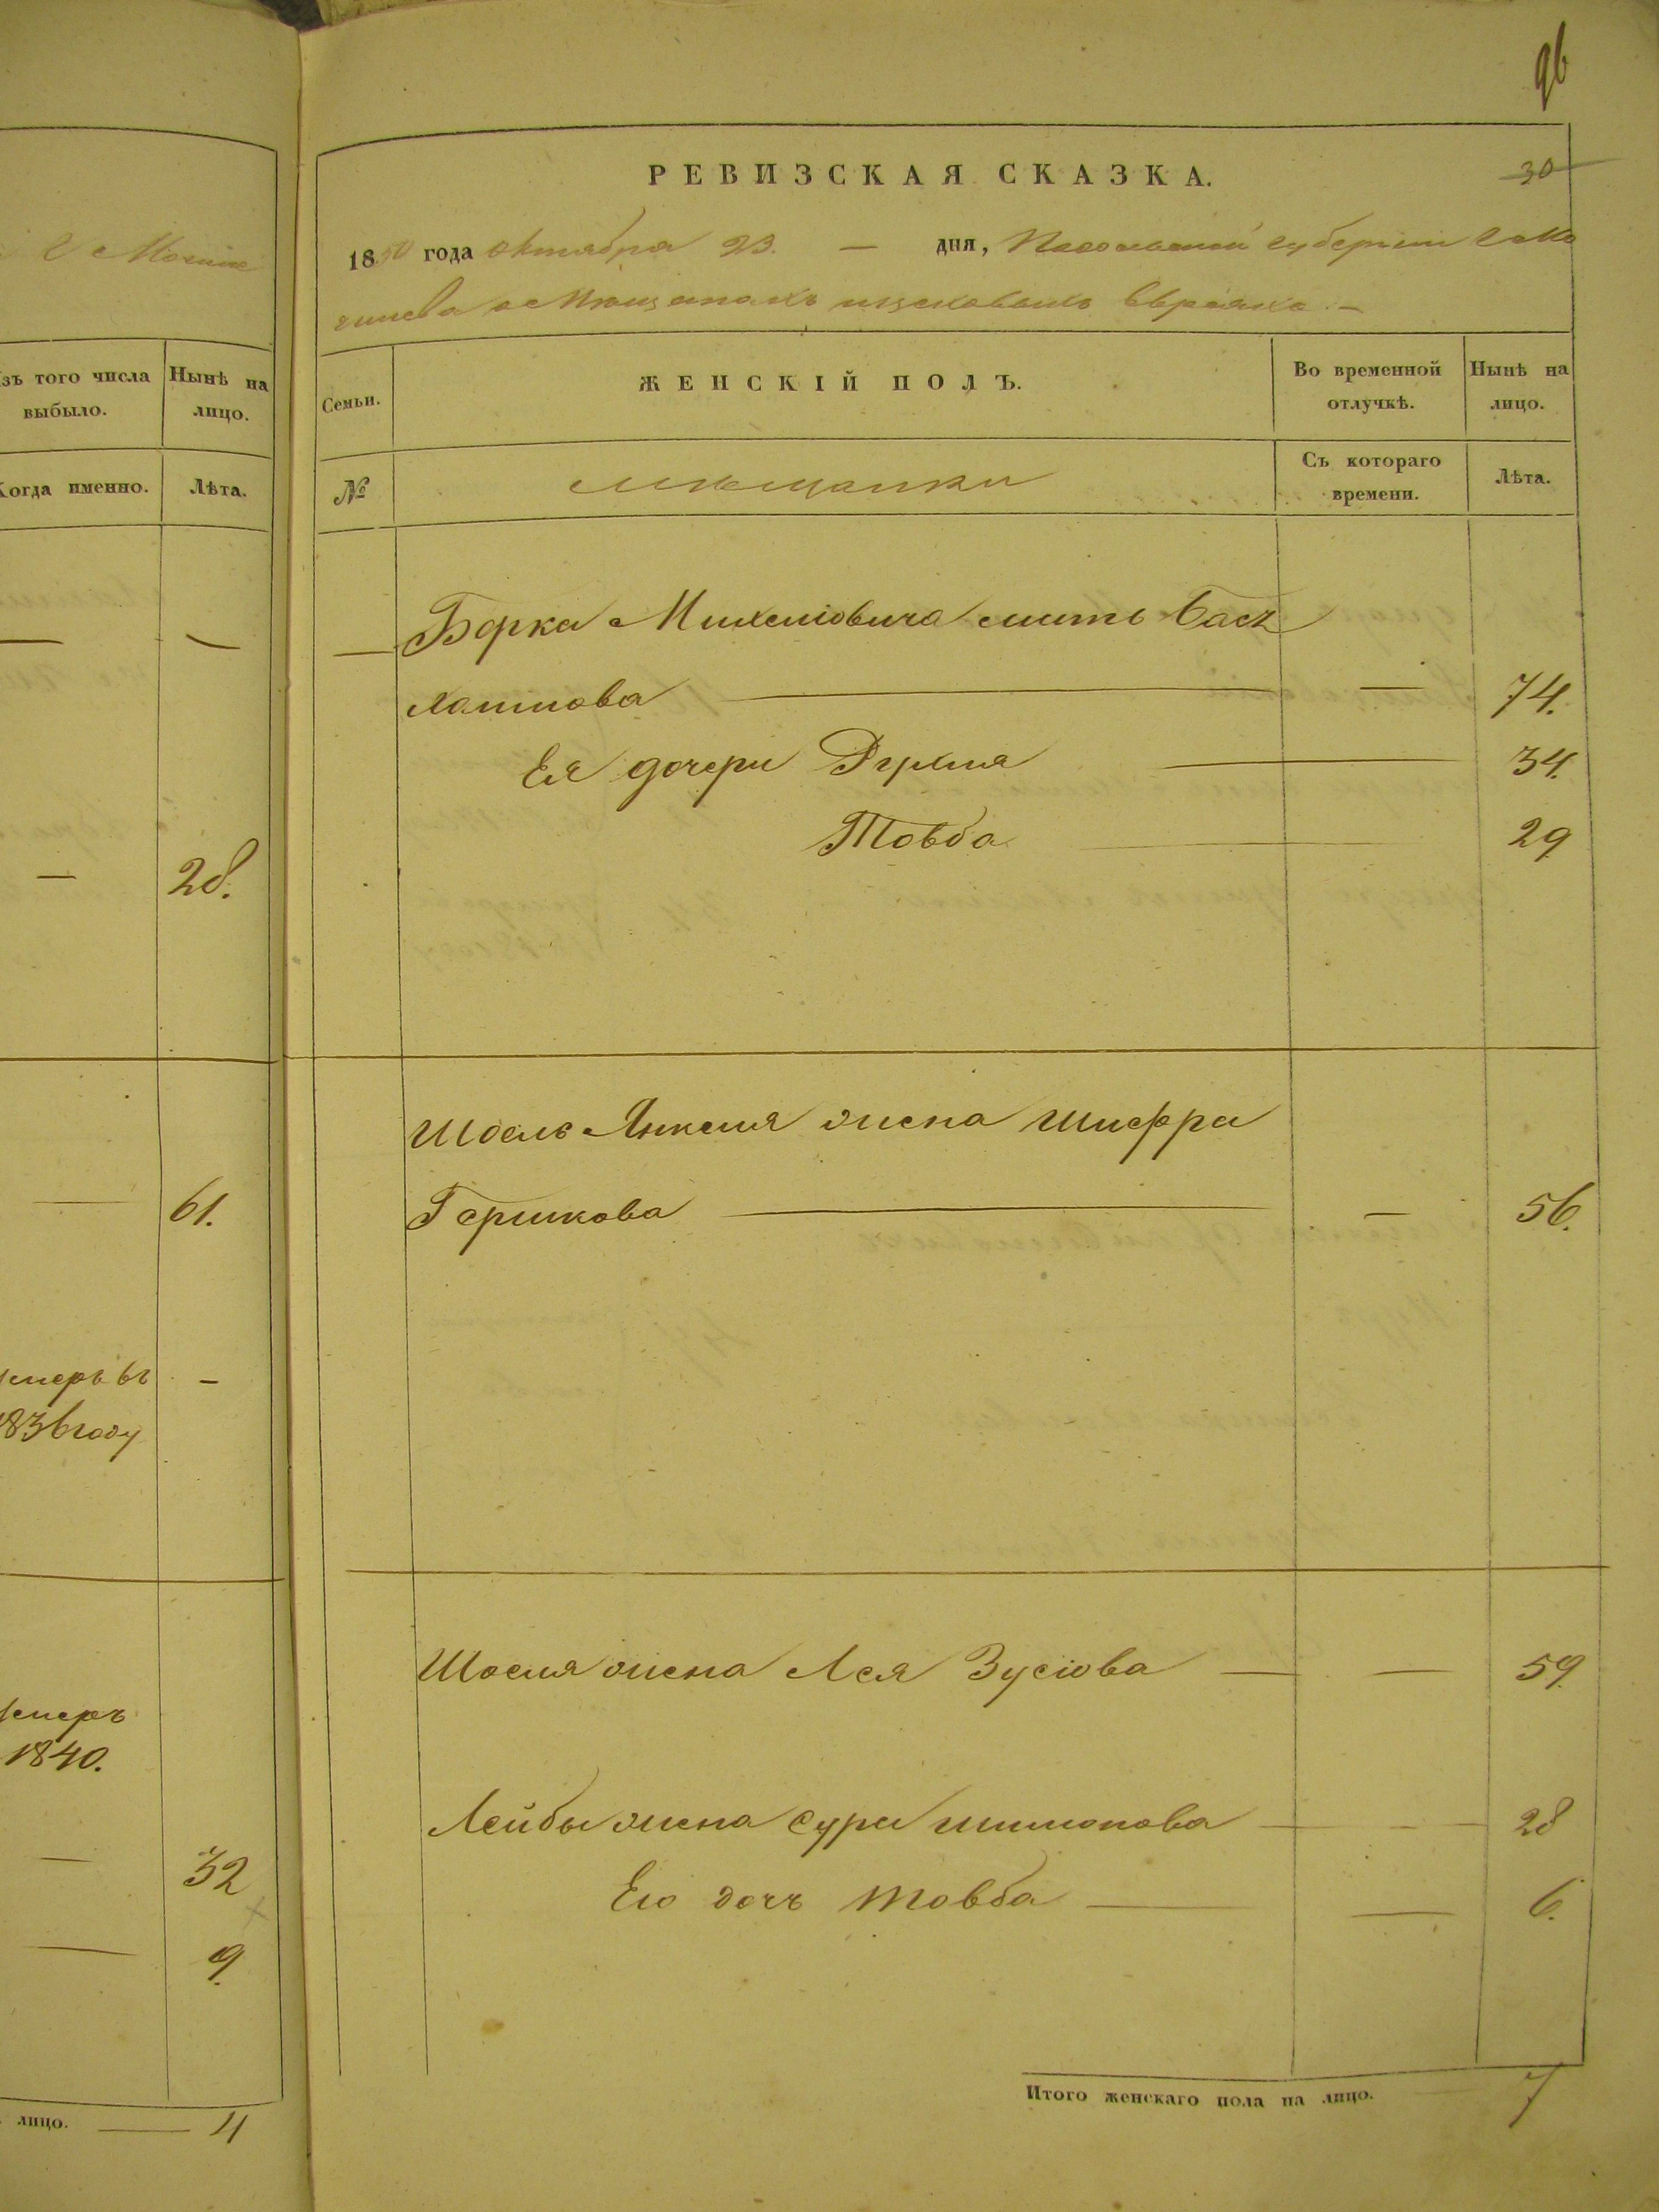 г Могиле
Изъ того числа выбыло.
Нынѣ на лицо.
Когда именно.
Лѣта.
—
—
—
28.
—
61.
умеръ въ
—
1836 году
умеръ
1840.
—
32
—
9.
лицо. — 4
96
РЕВИЗСКАЯ СКАЗКА.
30
1850 года октября 23. — дня, Подольской губерніи г. Мо
гилева о мѣщанахъ евреяхъ. —
Семьи.
ЖЕНСКІЙ ПОЛЪ.
Во временной отлучкѣ.
Нынѣ на лицо.
№
мѣщанки
Съ котораго времени.
Лѣта.
Борка Михелiовича мать Бася
Хаимова — — 74.
Ея дочери Рухля — 34.
Товба — 29
Шоель Янкеля жена Шифра
Гершкова — — 56.
Шоеля жена Лея Зусiова — — 59.
Лейбы жена Сура Шимонова — — 28
Его дочь Товба — — 6.
Итого женскаго пола на лицо. 7